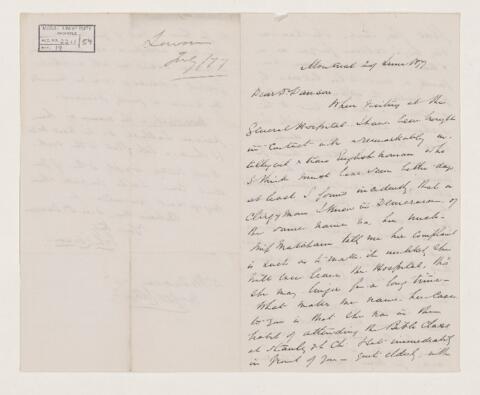 McGILL UNIVERSITY
ARCHIVES
ACC. NO. 2211/54
REF. 19
July/77
Montreal 29 June 1877
Dear Dr Dawson
When visiting at the
General Hospital I have been brought
in contact with a remarkably in
telligent & trained English woman who
I think must have seen better days
at least I found incidently that a
Clergyman I knew in Demerara of
the same name was her uncle
Miss Machin tells me her complaint
is such as to make it unlikely she
will ever leave the Hospital, tho'
she may linger for a long time -
What makes me name her case
to you is that she was in the
habit of attending the Bible Class
at Stanley St Ch. & sat immediately
in front of you - quite elderly, with